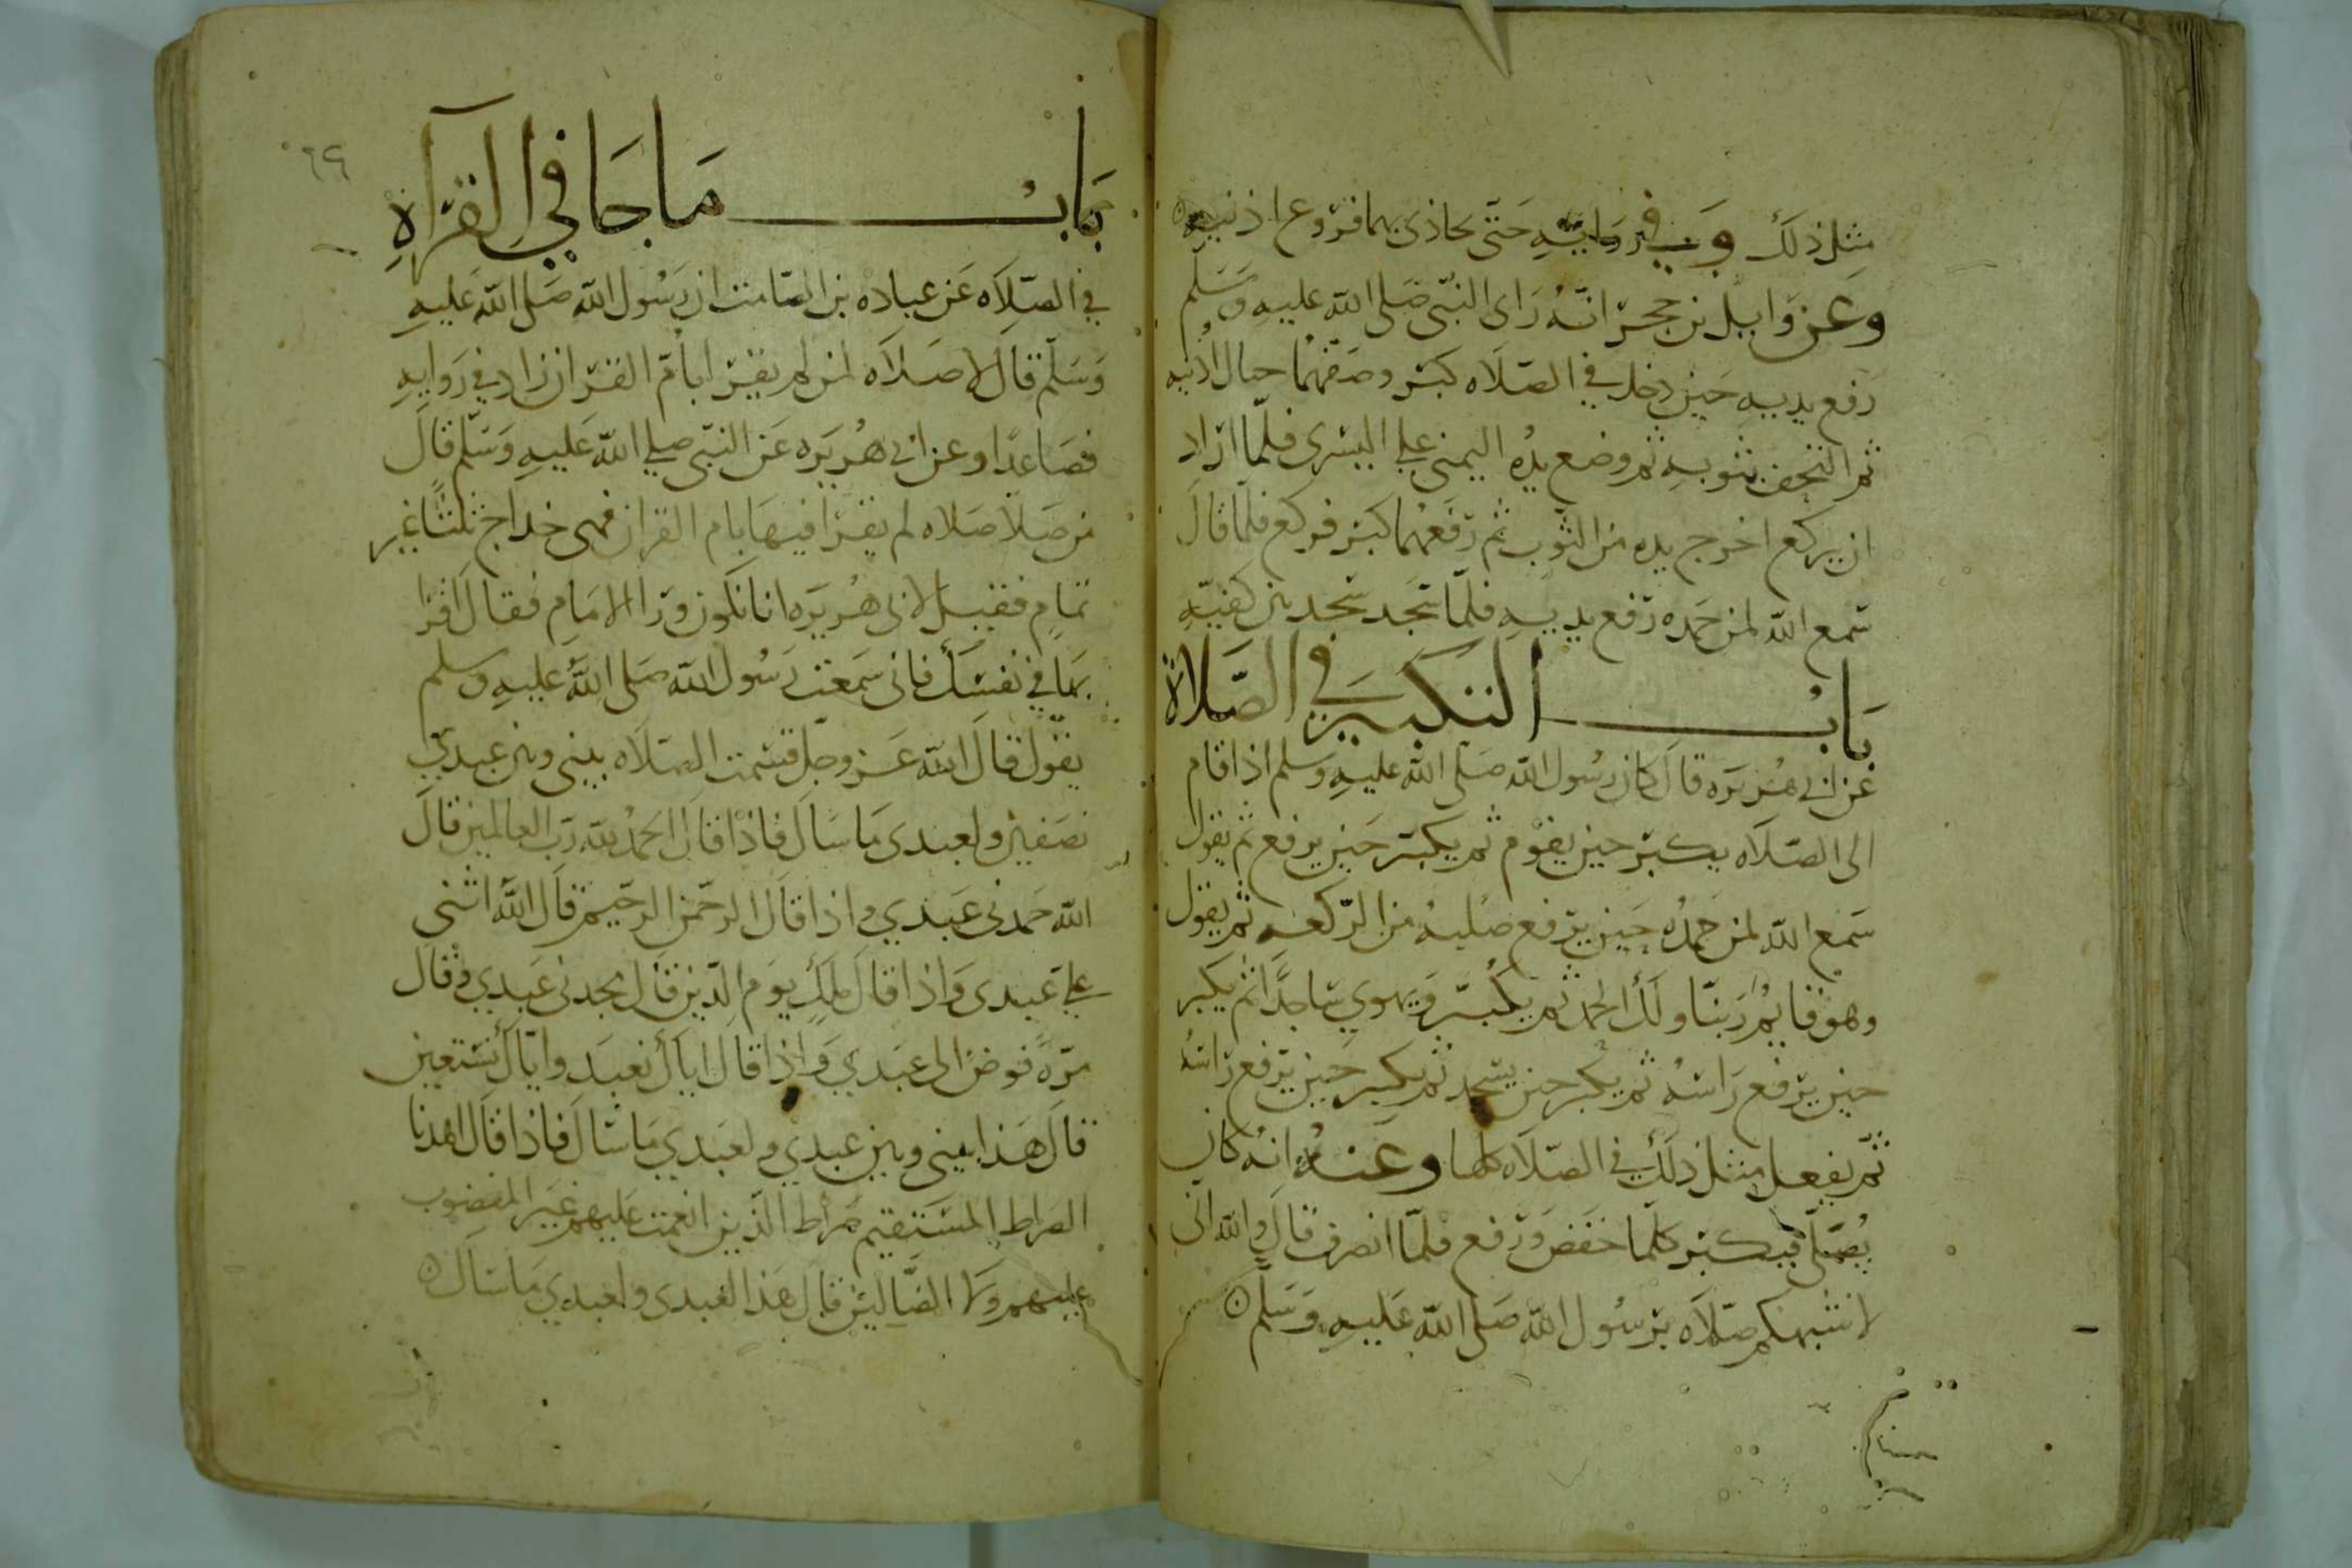 مثل ذلك وفي روايته حتى يحاذى بهما فروع اذنيه
وعن وايل بن حجر انه راى النبي صلى الله عليه وسلم
رفع يديه حين دخل في الصلاه كبر وصفهما حيال اذنيه
ثم التحف بثوبه ثم وضع يده اليمنى على اليسرى فلما اراد
ان يركع اخرج يده من الثوب ثم رفعهما كبر فركع فلما قال
سمع الله لمن حمده رفع يديه فلما سجد سجد بين كفيه
باب التكبير في الصلاة
عن ابي هريره قال كان رسول الله صلى الله عليه وسلم اذا قام
الى الصلاه يكبر حين يقوم ثم يكبر حين يرفع ثم يقول
سمع الله لمن حمده حين يرفع صلبه من الركعه ثم يقول
وهو قايم ربنا ولك الحمد ثم يكبر ويهوي ساجدا ثم يكبر
حين يرفع راسه ثم يكبر حين يسجد ثم يكبر حين يرفع راسه
ثم يفعل مثل ذلك في الصلاه كلها وعنه انه كان
يصلى فيكبر كلما خفض ورفع فلما انصرف قال والله اني
لاشبهكم صلاه برسول الله صلى الله عليه وسلم
٦٩
باب ما جا في القرآة
في الصلاه عن عباده بن الصامت ان رسول الله صلى الله عليه
وسلم قال لا صلاه لمن لم يقرا بام القران زاد في روايه
فصاعدا وعن ابي هريره عن النبي صلي الله عليه وسلم قال
من صلا صلاه لم يقرا فيها بام القران فهى خداج ثلثا غير
تمام فقيل لابي هريره انا نكون ورا الامام فقال اقرا
بها في نفسك فاني سمعت رسول الله صلى الله عليه وسلم
يقول قال الله عز وجل قسمت الصلاه بينى وبين عبدي
نصفين ولعبدى ما سال فاذا قال الحمد لله رب العالمين قال
الله حمدنى عبدي واذا قال الرحمن الرحيم قال الله اثنى
علي عبدى واذا قال ملك يوم الدين قال مجدنى عبدي وقال
مرة فوض الى عبدي واذا قال اياك نعبد واياك نستعين
قال هذا بينى وبين عبدي ولعبدي ما سال فاذا قال اهدنا
الصراط المستقيم صراط الذين انعمت عليهم غير المغضوب
عليهم ولا الضالين قال هذا لعبدى ولعبدي ما سال